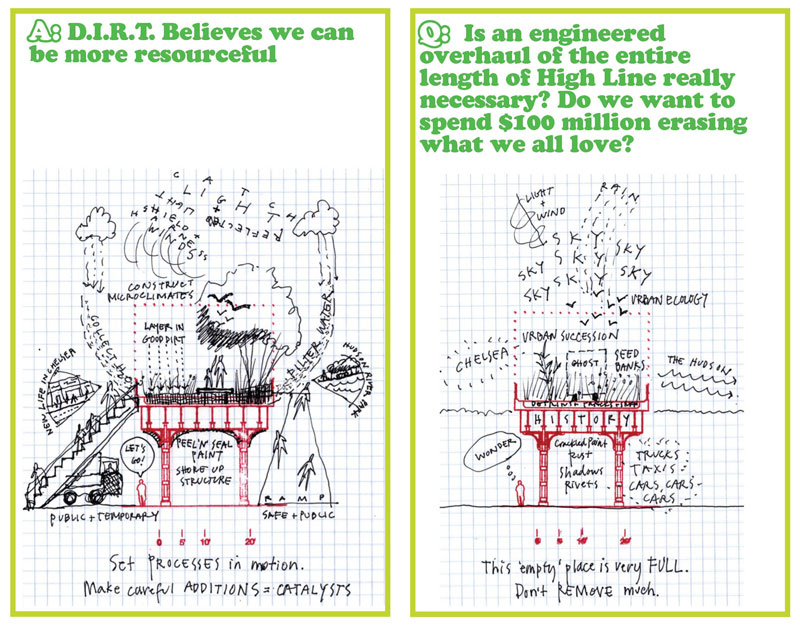 A: D.I.R.T. Believes we can
be more resourceful
CATCH
LIGHT
LIGHT +
REFLECT
SHIELD
WINDS
CONSTRUCT
MICROCLIMATES
COLLECT H2O
LAYER IN
GOOD DIRT
FILTER WATER
NEW LIFE IN CHELSEA
HUDSON
RIVER PARK
PEEL'N SEAL
PAINT
SHORE UP
STRUCTURE
LET'S
GO!
RAMP
PUBLIC + TEMPORARY
SAFE + PUBLIC
0 5' 10' 20'
Set PROCESSES in motion.
Make careful ADDITIONS = CATALYSTS
Q: Is an engineered
overhaul of the entire
length of High Line really
necessary? Do we want to
spend $100 million erasing
what we all love?
LIGHT
+
WIND
RAIN
SKY
SKY
SKY SKY
SKY SKY
URBAN ECOLOGY
URBAN SUCCESSION
CHELSEA
GHOST
SEED
BANKS
THE HUDSON
HISTORY
WONDER
Cracked Paint
Rust
Shadows
Rivets
TRUCKS
TAXIS
CARS, CARS
CARS
This 'empty' place is very FULL.
Don't REMOVE much.